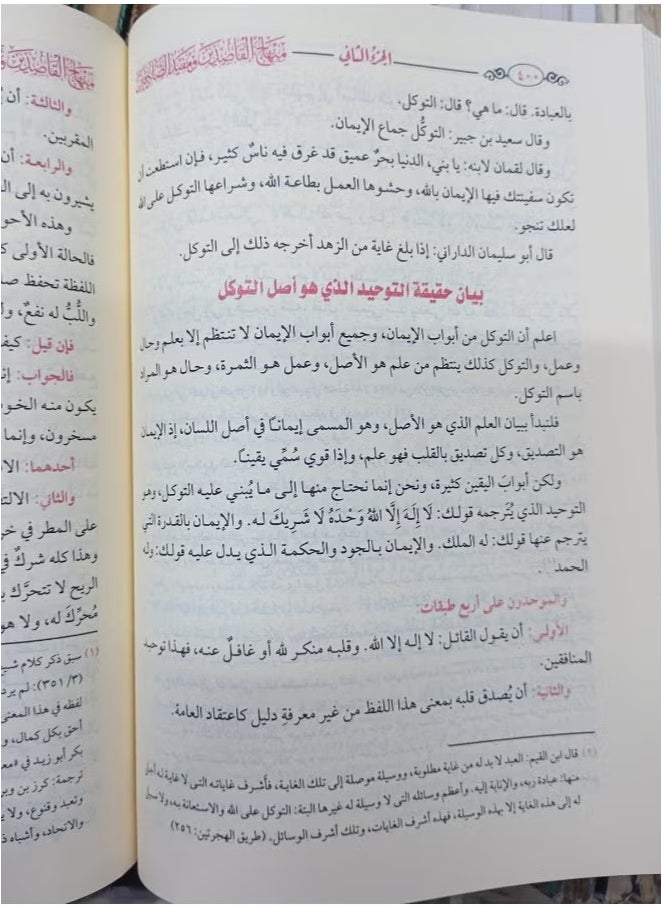 ٤٠٠
الجزء الثاني
منهاج القاصدين ومفيد الصادقين
بالعبادة. قال: ما هي؟ قال: التوكل.
وقال سعيد بن جبير: التوكُّل جماع الإيمان.
وقال لقمان لابنه: يا بني، الدنيا بحرٌ عميق قد غرق فيه ناسٌ كثير، فإن استطعت أن
تكون سفينتك فيها الإيمان بالله، وحشوها العمل بطاعة الله، وشراعها التوكل على الله
لعلك تنجو.
قال أبو سليمان الداراني: إذا بلغ غاية من الزهد أخرجه ذلك إلى التوكل.
بيان حقيقة التوحيد الذي هو أصل التوكل
اعلم أن التوكل من أبواب الإيمان، وجميع أبواب الإيمان لا تنتظم إلا بعلم وحال
وعمل، والتوكل كذلك ينتظم من علم هو الأصل، وعمل هو الثمرة، وحال هو المراد
باسم التوكل.
فلنبدأ ببيان العلم الذي هو الأصل، وهو المسمى إيمانًا في أصل اللسان، إذ الإيمان
هو التصديق، وكل تصديق بالقلب فهو علم، وإذا قوي سُمِّي يقينًا.
ولكن أبوابَ اليقين كثيرة، ونحن إنما نحتاج منها إلى ما يُبنى عليه التوكل، وهو
التوحيد الذي يُترجمه قولك: لَا إِلَهَ إِلَّا اللهُ وَحْدَهُ لَا شَرِيكَ لَه. والإيمان بالقدرة التي
يترجم عنها قولك: له الملك. والإيمان بالجود والحكمة الذي يدل عليه قولك: وله
الحمد
والموحدون على أربع طبقات:
الأولى: أن يقول القائل: لا إله إلا الله. وقلبه منكر لله أو غافلٌ عنه، فهذا توحيد
المنافقين.
والثانية: أن يُصدق قلبه بمعنى هذا اللفظ من غير معرفةِ دليل كاعتقاد العامة.
قال ابن القيم: العبد لا بد له من غاية مطلوبة، ووسيلة موصلة إلى تلك الغاية، فأشرف غاياته التي لا غاية له أجل
منها: عبادة ربه، والإنابة إليه. وأعظم وسائله التي لا وسيلة له غيرها البتة: التوكل على الله والاستعانة به، ولا سبيل
له إلى هذه الغاية إلا بهذه الوسيلة، فهذه أشرف الغايات، وتلك أشرف الوسائل. (طريق الهجرتين: ٢٥٦)
منهاج القاصدين
والثالثة: أن
المقربين.
والرابعة: أن
يشيرون به إلى
وهذه الأحو
فالحالة الأولى
اللفظة تحفظ
واللُّبُّ له نفعٌ،
فإن قيل: كيف
فالجواب:
يكون منه
مسخرون، وإنما
أحدهما:
والثاني:
على المطر في
وهذا كله شركٌ في
الريح لا تتحرَّك
مُحرِّكَ له، ولا هو
(١) سبق ذكر كلام
(٣/ ٣٥١): لم
لفظه في هذا المعنى
أحق بكل كمال،
بكر أبو زيد في
ترجمة: كرز بن
وتعبد وقنوع، ولا
والاتحاد، وأشباه